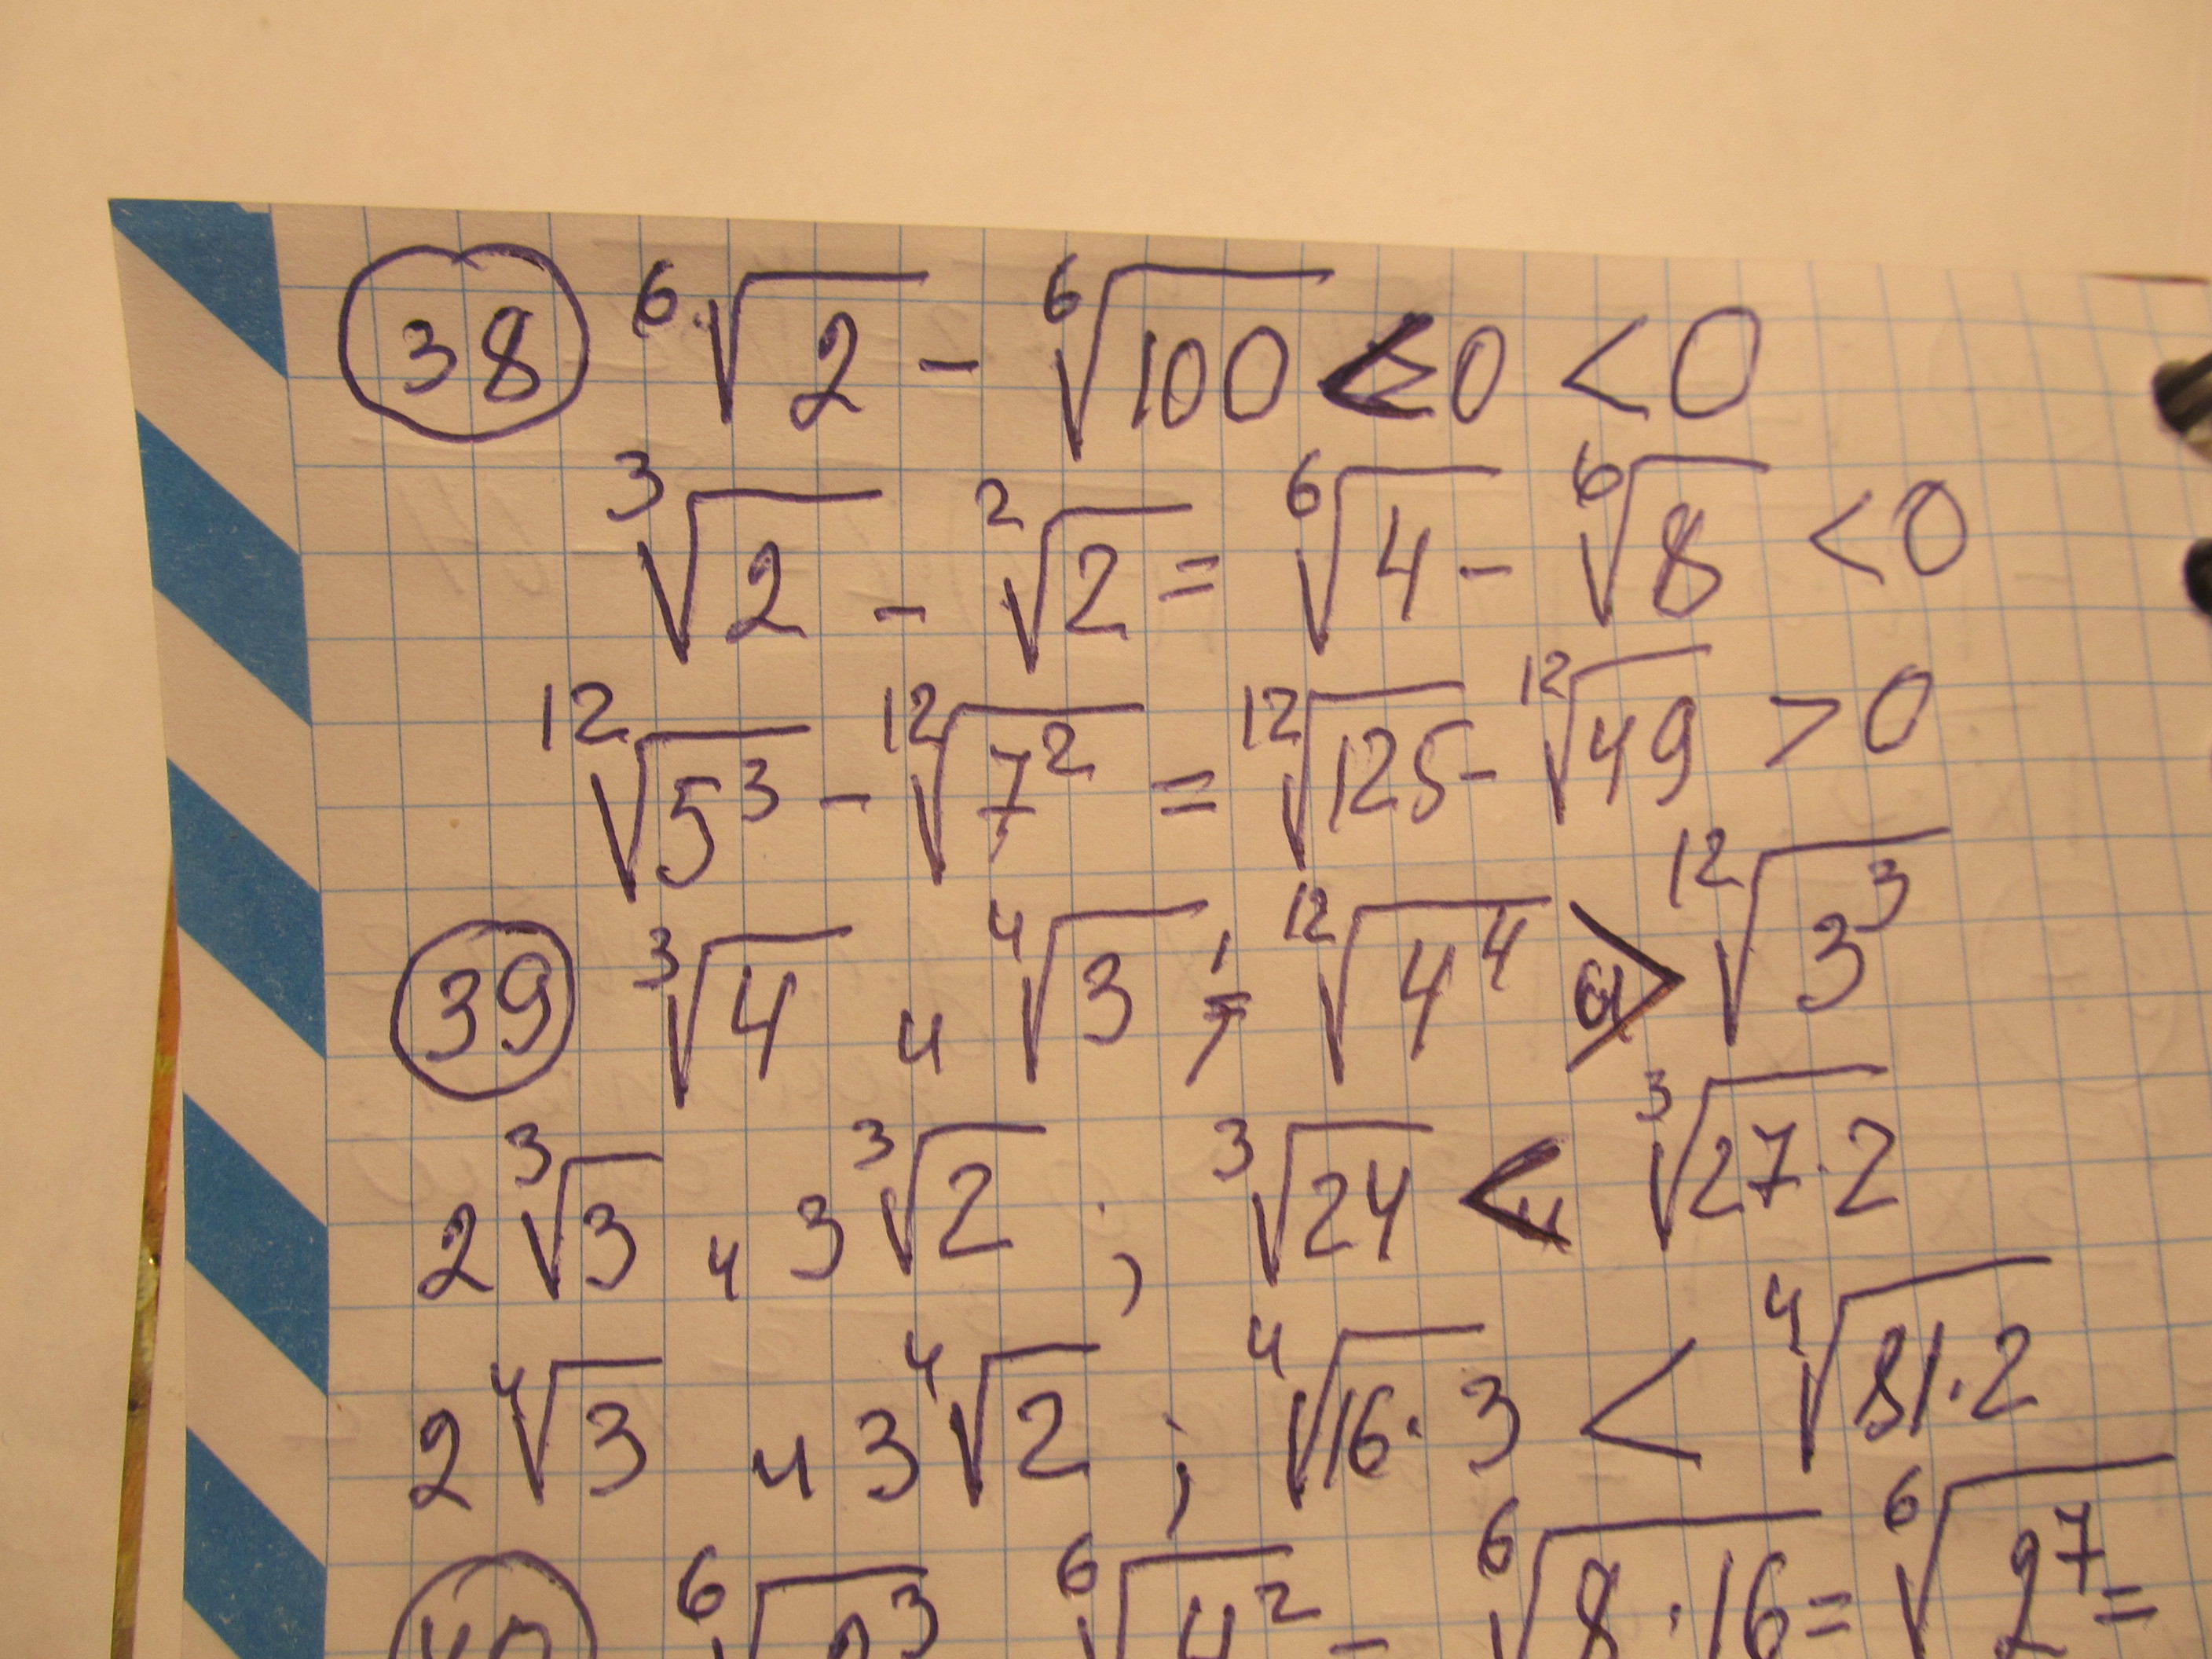 38 ⁶√2 - ⁶√100 < 0 < 0
³√2 - ²√2 = ⁶√4 - ⁶√8 < 0
¹²√5³ - ¹²√7² = ¹²√125 - ¹²√49 > 0
39 ³√4 и ⁴√3 ; ¹²√4⁴ > ¹²√3³
2³√3 и 3³√2 ; ³√24 < ³√27·2
2⁴√3 и 3⁴√2 ; ⁴√16·3 < ⁴√81·2
40 ⁶√2³ ⁶√4² = ⁶√8·16 = ⁶√2⁷ =